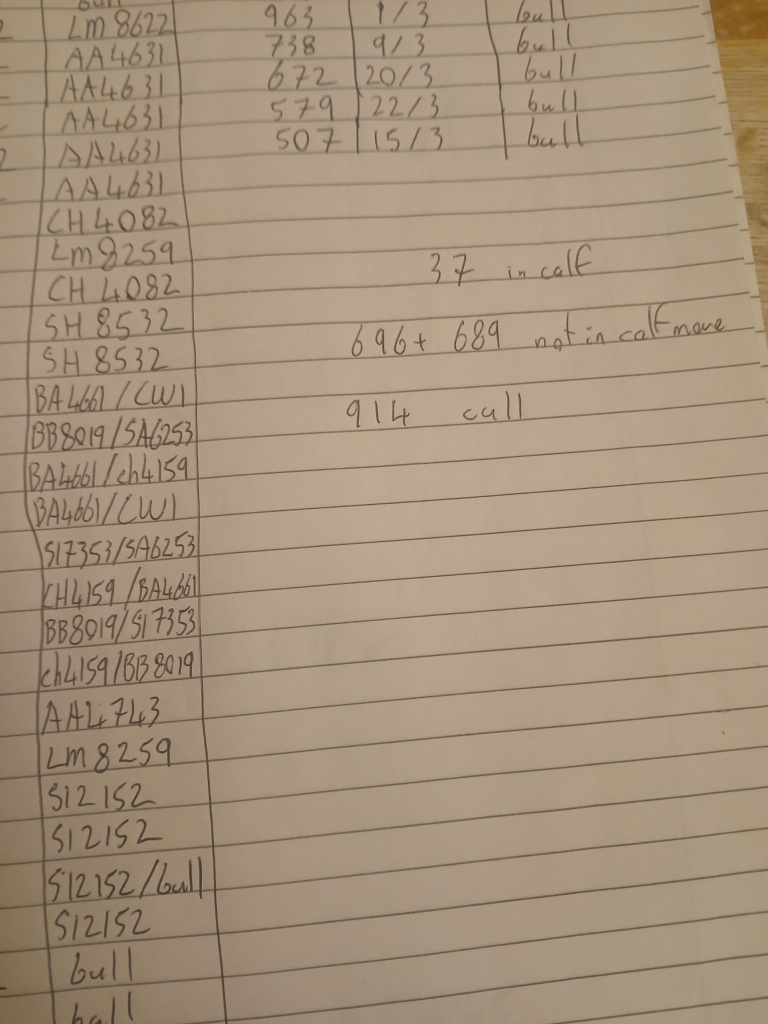 LM 8622 963 1/3 bull
AA4631 738 9/3 bull
AA4631 672 20/3 bull
AA4631 579 22/3 bull
AA4631 507 15/3 bull
AA4631
CH 4082
Lm8259
CH 4082
SH 8532
SH 8532
BA4661/CW1
BB8019/SA6253
BA4661/ch4159
BA4661/CW1
S17353/SA6253
CH4159/BA4661
BB8019/S17353
ch4159/BB8019
AA4743
LM 8259
S12152
S12152
S12152/bull
S12152
bull
bull
37 in calf
696+ 689 not in calf move
914 cull